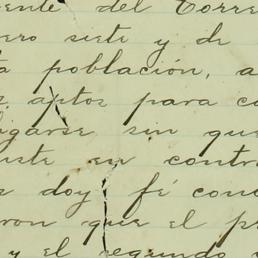 ente del Corre
ero siete y de
a población, a
s, aptos para co
ligarse sin que
uste en contra
s doy fé cono
ron que el pr
y el segundo